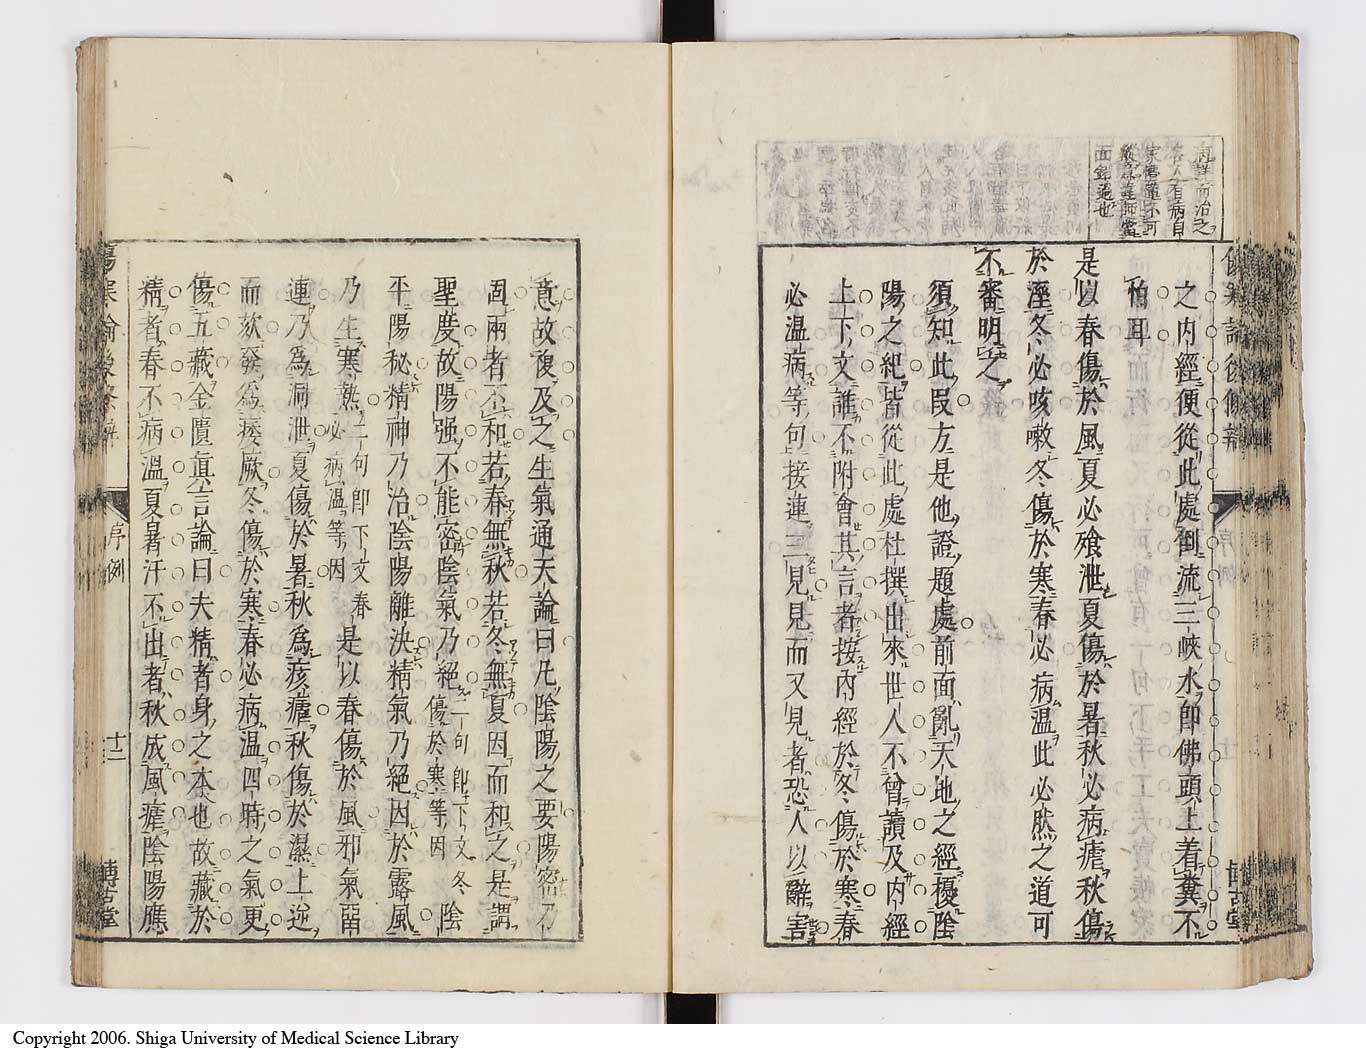 之内經便從此處倒流三峽水卽佛頭上着糞不
怕耳
是以春傷於風夏必飱泄夏傷於暑秋必病瘧秋傷
於溼冬必咳嗽冬傷於寒春必病溫此必然之道可
不審明之
須知此叚方是他證題處前面亂天地之經擾陰
陽之紀皆從此處杜撰出來世人不曾讀及内經
上下文誰不附會其言者按内經於冬傷於寒春
必温病等句接連三見見而又見者恐人以辭害
意故復及之生氣通天論曰凡陰陽之要陽密乃
固兩者不和若春無秋若冬無夏因而和之是謂
聖度故陽强不能密陰氣乃絕二句卽下文冬傷於寒等因陰
平陽秘精神乃治陰陽離決精氣乃絕因於露風
乃生寒熱二句卽下文春必病温等因是以春傷於風邪氣留
連乃爲洞泄夏傷於暑秋爲痎瘧秋傷於濕上逆
而欬發爲痿厥冬傷於寒春必病温四時之氣更
傷五藏金匱眞言論曰夫精者身之本也故藏於
精者春不病温夏暑汗不出者秋成風瘧陰陽應
序例
十二
博古堂
Copyright 2006. Shiga University of Medical Science Library